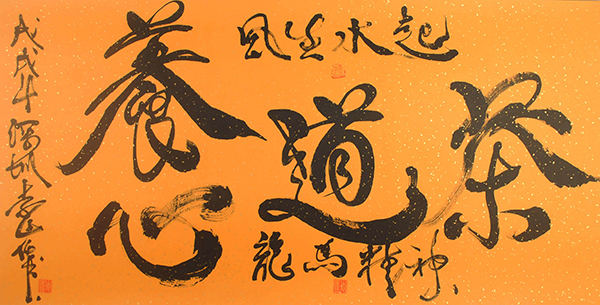 茶道養心
風生水起
龍馬精神
戊戌年